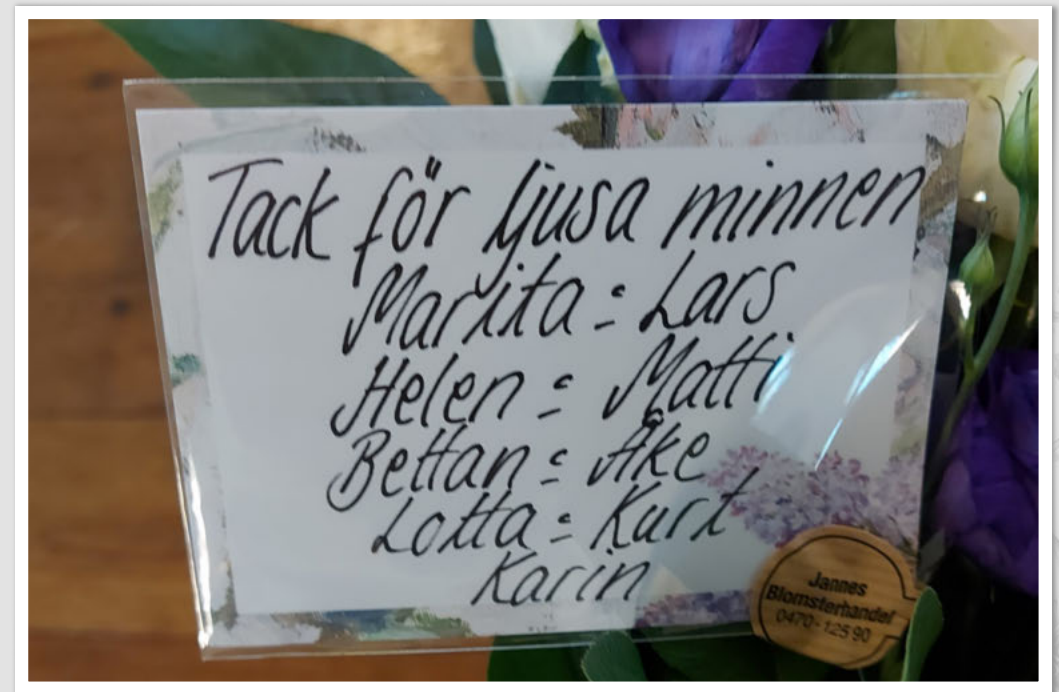 Tack för ljusa minnen
Marita = Lars
Helen = Matti
Bettan = Åke
Lotta = Kurt
Karin
Jannes
Blomsterhandel
0470-125 90